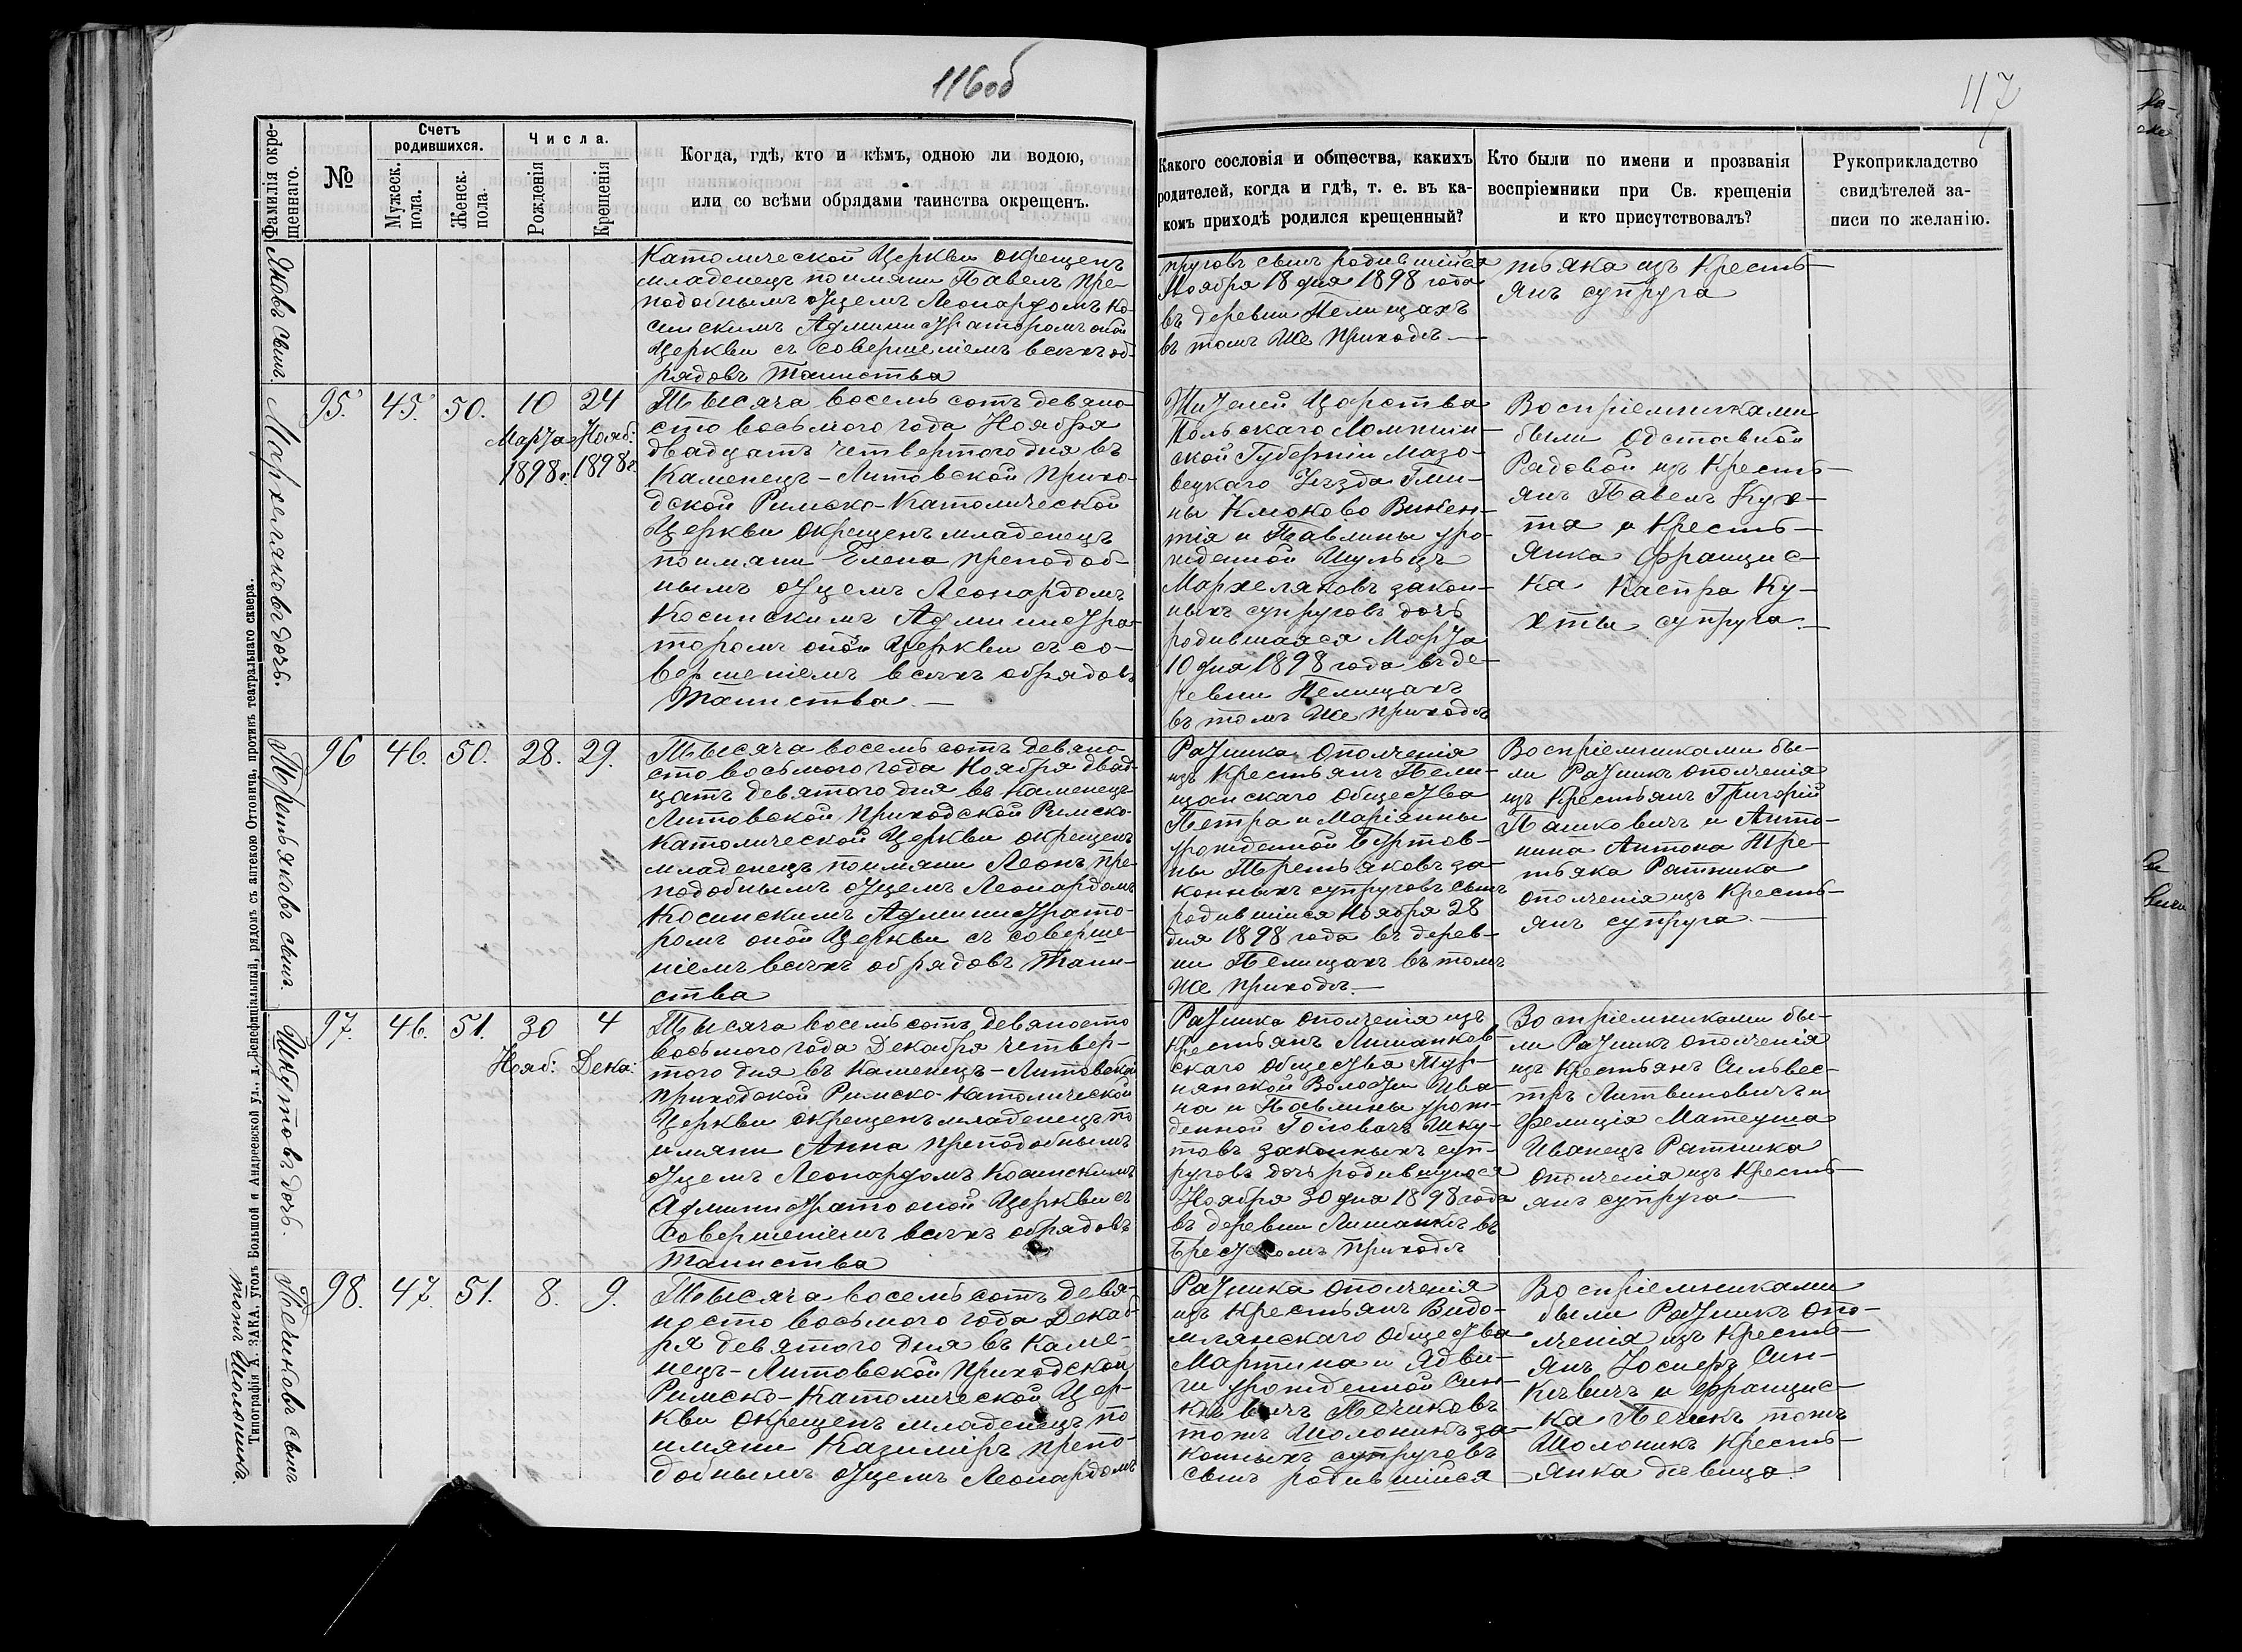 116об
Фамилія окре-
щеннаго.
№
Счетъ
родившихся.
Мужеск.
пола.
Женск.
пола.
Числа.
Рожденія
Крещенія
Когда, гдѣ, кто и кѣмъ, одною ли водою,
или со всѣми обрядами таинства окрещенъ.
Яковъ сынъ.
Католической Церкви окрещенъ
младенецъ по имяни Павелъ Пре-
подобнымъ отцемъ Леонардомъ Ко-
синскимъ Администраторомъ оной
Церкви съ совершеніемъ всѣхъ об-
рядовъ Таинства
Мархеляковъ дочь.
95.
45.
50.
10
Марта
1898 г.
24
Нояб:
1898 г.
Тысяча восемь сотъ девяно-
сто восьмого года Ноября
двадцать четвертого дня въ
Каменецъ-Литовской Прихо-
дской Римско-Католической
Церкви окрещенъ младенецъ
по имяни Елена преподоб-
нымъ отцемъ Леонардомъ
Косинскимъ Администра-
торомъ оной Церкви съ со-
вершеніемъ всѣхъ обрядовъ
Таинства —
Третьяковъ сынъ.
96
46.
50.
28.
29.
Тысяча восемь сотъ девяно-
сто восьмого года Ноября двад-
цать девятого дня въ Каменецъ-
Литовской Приходской Римско-
Католической Церкви окрещенъ
младенецъ по имяни Леонъ пре-
подобнымъ отцемъ Леонардомъ
Косинскимъ Администрато-
ромъ оной Церкви съ соверше-
ніемъ всѣхъ обрядовъ Таин-
ства
Шкутовъ дочь.
97.
46.
51.
30
Нояб:
4
Дека:
Тысяча восемь сотъ девяносто
восьмого года Декабря четвер-
того дня въ Каменецъ-Литовской
приходской Римско-Католической
Церкви окрещенъ младенецъ по
имяни Анна преподобнымъ
отцемъ Леонардомъ Косинскимъ
Администрато оной Церкви съ
совершеніемъ всѣхъ обрядовъ
Таинства
Печиковъ сынъ
тожъ Шолоникъ.
98.
47.
51.
8.
9.
Тысяча восемь сотъ девя-
носто восьмого года Декаб-
ря девятого дня въ Каме-
нецъ-Литовской Приходской
Римско-Католической Цер-
кви окрещенъ младенецъ по
имяни Казиміръ препо-
добнымъ отцемъ Леонардомъ
Типографія А. ЗАКА, уголъ Большой и Андреевской ул., д. Бенефиціальный, рядомъ съ аптекою Оттовича, противъ театральнаго сквера.
117
Какого сословія и общества, какихъ
родителей, когда и гдѣ, т. е. въ ка-
комъ приходѣ родился крещенный?
Кто были по имени и прозванія
воспріемники при Св. крещеніи
и кто присутствовалъ?
Рукоприкладство
свидѣтелей за-
писи по желанію.
пруговъ сынъ родившійся
Ноября 18 дня 1898 года
въ деревни Пелищахъ
въ томъ же приходѣ —
тьяка изъ Кресть-
янъ супруга
Жителей Царства
Польскаго Ломжин-
ской Губерніи Мазо-
вецкаго Уѣзда Гми-
ны Клюково Викен-
тія и Павлины уро-
жденной Шульцъ
Мархеляковъ закон-
ныхъ супруговъ дочь
родившаяся Марта
10 дня 1898 года въ де-
ревни Пелищахъ
въ томъ же приходѣ
Воспріемниками
были Отставной
Рядовой изъ Кресть-
янъ Павелъ Кух-
та и Кресть-
янка Францис-
ка Каспра Ку-
хты супруга —
Ратника ополченія
изъ Крестьянъ Пели-
щанскаго Общества
Петра и Маріянны
урожденной Бартов-
ны Третьяковъ за-
конныхъ супруговъ сынъ
родившійся Ноября 28
дня 1898 года въ дерев-
ни Пелищахъ въ томъ
же приходѣ. —
Воспріемниками бы-
ли Ратникъ ополченія
изъ Крестьянъ Григорій
Пашковичъ и Анто-
нина Антона Тре-
тьяка Ратника
ополченія изъ Кресть-
янъ супруга —
Ратника ополченія изъ
Крестьянъ Лишанков-
скаго Общества Тур-
нянской Волости Ива-
на и Павлины урож-
денной Головачъ Шку-
товъ законныхъ суп-
руговъ дочь родившуюся
Ноября 30 дня 1898 года
въ деревни Лишанкѣ въ
Брестскомъ приходѣ
Воспріемниками бы-
ли Ратникъ ополченія
изъ Крестьянъ Сильвес-
тръ Литвиновичъ и
Фелиція Матеуша
Иванецъ Ратника
ополченія изъ Кресть-
янъ супруга —
Ратника ополченія
изъ Крестьянъ Видо-
млянскаго Общества
Мартина и Ядви-
ги урожденной Син-
кевичъ Печиковъ
тожъ Шолоникъ за-
конныхъ супруговъ
сынъ родившійся
Воспріемниками
были Ратникъ опо-
лченія изъ Кресть-
янъ Іосифъ Син-
кевичъ и Францис-
ка Печикъ тожъ
Шолоникъ Кресть-
янка дѣвица.